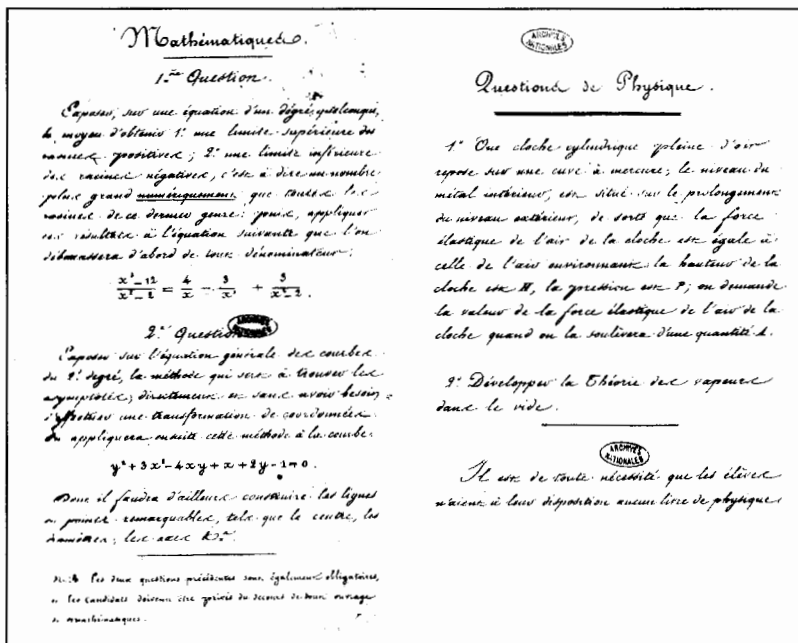 Mathématiques.
1ère Question.
Exposer, sur une équation d'un dégré quelconque,
le moyen d'obtenir 1.° une limite supérieure des
racines positives; 2.° une limite inférieure
des racines négatives, c'est à dire un nombre
plus grand numériquement que toutes les
racines de ce dernier genre: puis, appliquer
ces résultats à l'équation suivante que l'on
débarrassera d'abord de tout dénominateur:
2.e Question
Exposer sur l'équation générale des courbes
du 2.e degré, la méthode qui sert à trouver les
asymptotes; directement et sans avoir besoin
d'effectuer une transformation de coordonnées.
On appliquera ensuite cette méthode à la courbe.
y² + 3x² - 4xy + x + 2y - 1 = 0.
Dont il faudra d'ailleurs construire les lignes
et points remarquables, tels que le centre, les
diamètres, les axes &.a
N.B. Les deux questions précédentes sont également obligatoires,
et les candidats doivent être privés du secours de tout ouvrage
de mathématiques.
ARCHIVES NATIONALES
Questions de Physique.
1.° Une cloche cylindrique pleine d'air
repose sur une cuve à mercure; le niveau du
métal intérieur, est situé sur le prolongement
du niveau extérieur, de sorte que la force
élastique de l'air de la cloche est égale à
celle de l'air environnant. la hauteur de la
cloche est H, la pression est P; on demande
la valeur de la force élastique de l'air de la
cloche quand on la soulèvera d'une quantité h.
2.° Développer la Théorie des vapeurs
dans le vide.
ARCHIVES NATIONALES
Il est de toute nécessité que les élèves
n'aient à leur disposition aucun livre de physique.